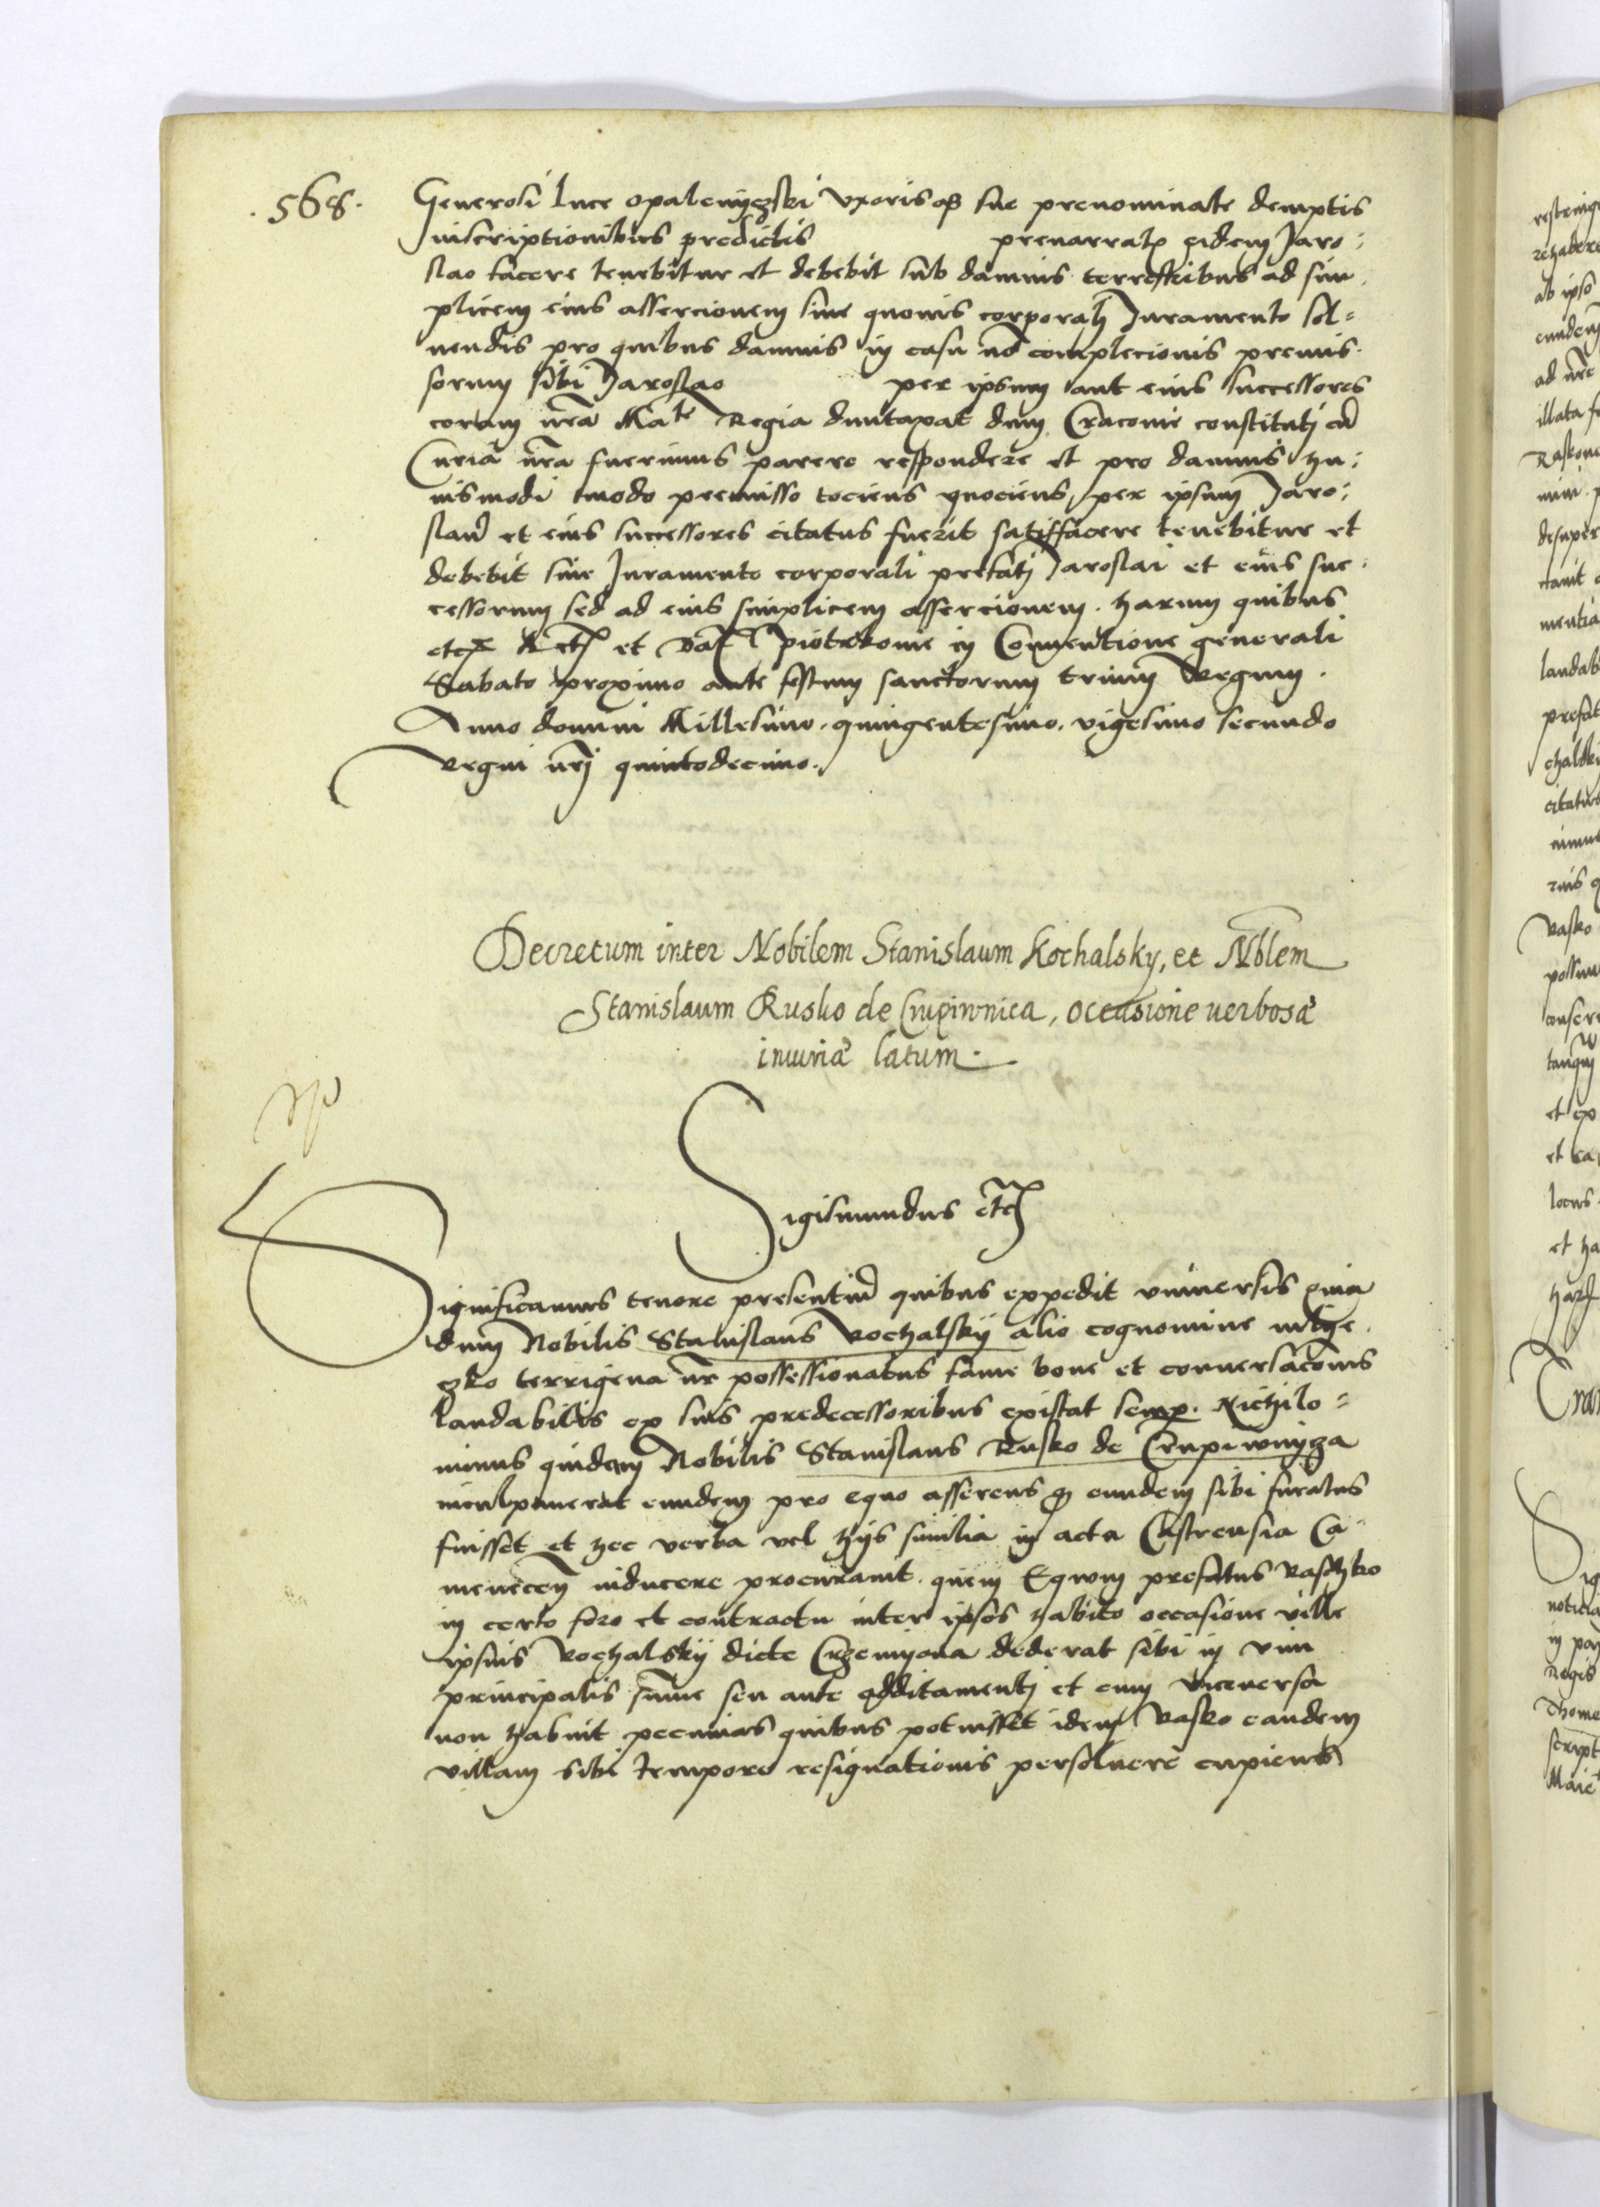 .568.
Generosi luce opalenyczski vxorisqß sue prenominate demptis
Inscriptionibus predictis prenarrata eidem Jaro:
slao facere tenebitur et debebit sub damnis terrestribus ad sim
plicem eius assercionem sine quouis corporali Juramento sol=
uendis pro quibus damnis in casu no complecionis premis
sorum sibi Jaroslao per ipsum aut eius successores
coram nra Mate Regia duntaxat dum Cracouie constituti cu
Curia nra fuerimus parere respondere et pro damnis hu:
iusmodi modo premisso tociens quociens per ipsum Jaro:
slau et eius successores citatus fuerit satisfacere tenebitur et
debebit sine Juramento corporali prefati Jaroslai et eius suc:
cessorum sed ad eius simplicem assercionem. harum quibus
etc. et Dat piotrkouie in Conuentione generali
Sabato proximo ante festum sanctorum trium Regum.
Anno domini Millesimo. quingentesimo. vigesimo secundo
Regni nri quintodecimo.
Decretum inter Nobilem Stanislaum Kochalsky, et Nblem
Stanislaum Rusko de Crupiwnica, occasione uerbosæ
iniuriæ latum.
Sigismundus etc
Significamus tenore presentiu quibus expedit vniuersis quia
dum Nobilis Stanislaus Kochalskij alio cognomine
czko terrigena nr possessionatus fame bone et conuersacionis
laudabilis ex suis predecessoribus existat semp. Nichilo=
minus quidam Nobilis Stanislaus Rusko de Crupiwnijcza
inculpauerat eundem pro equo asserens q eundem sibi furatus
fuisset et hec verba vel hijs similia in acta Castrensia Ca
menecen inducere procurauit. quem Equum prefatus Raschko
in certo foro et contractu inter ipsos habito occasione ville
ipsius Kochalskij dicte Crzemijona dederat sibi in vim
principalis sume seu ante additamenti et cum viceuersa
non habuit pecunias quibus potuisset idem Rasko eandem
villam sibi tempore resignationis persoluere cupiens